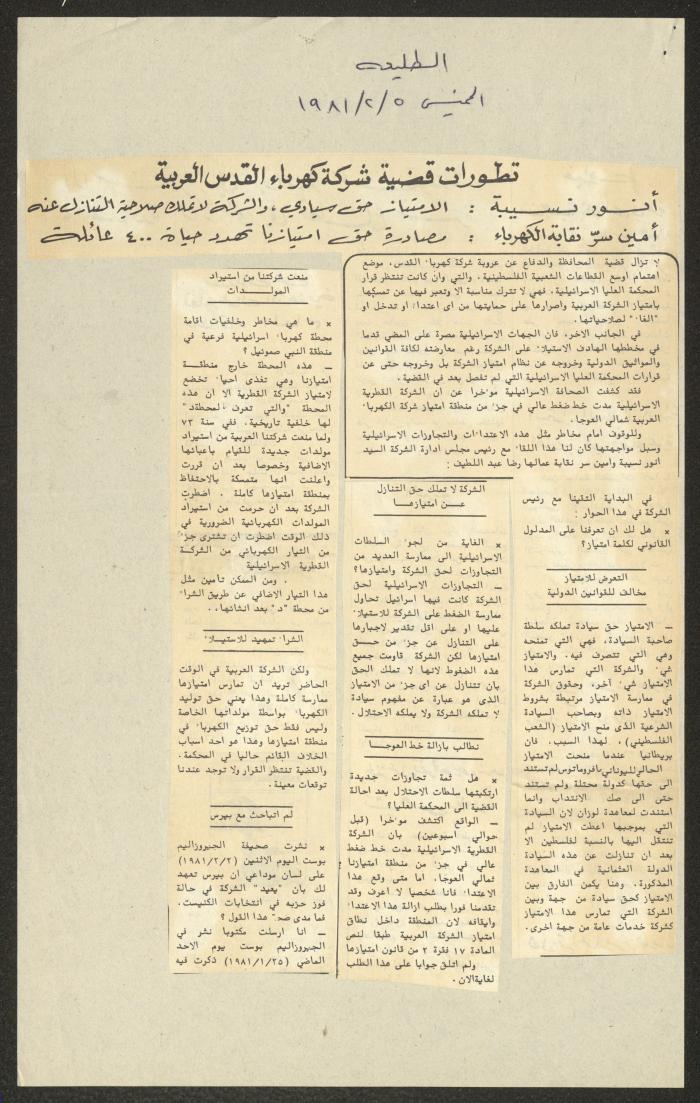 الطليعه
الخميس ١٩٨١/٢/٥
تطورات قضية شركة كهرباء القدس العربية
أنور نسيبة : الامتياز حق سيادي ، والشركة لا تملك صلاحية التنازل عنه
أمين سرّ نقابة الكهرباء : مصادرة حق امتيازنا تهدد حياة ٤٠٠ عائلة
لا تزال قضية المحافظة والدفاع عن عروبة شركة كهرباء القدس، موضع
اهتمام اوسع القطاعات الشعبية الفلسطينية. والتي وان كانت تنتظر قرار
المحكمة العليا الاسرائيلية، فهي لا تترك مناسبة الا وتعبر فيها عن تمسكها
بامتياز الشركة العربية واصرارها على حمايتها من اى اعتداء او تدخل او
"الغاء" لصلاحياتها.
في الجانب الاخر، فان الجهات الاسرائيلية مصرة على المضي قدما
في مخططها الهادف الاستيلاء على الشركة رغم معارضته لكافة القوانين
والمواثيق الدولية وخروجه عن نظام امتياز الشركة بل وخروجه حتى عن
قرارات المحكمة العليا الاسرائيلية التي لم تفصل بعد في القضية.
فقد كشفت الصحافة الاسرائيلية موٴخرا عن ان الشركة القطرية
الاسرائيلية مدت خط ضغط عالي في جزء من منطقة امتياز شركة الكهرباء
العربية شمالي العوجا.
وللوقوف امام مخاطر مثل هذه الاعتداءات والتجاوزات الاسرائيلية
وسبل مواجهتها كان لنا هذا اللقاء مع رئيس مجلس ادارة الشركة السيد
انور نسيبة وامين سر نقابة عمالها رضا عبد اللطيف:
في البداية التقينا مع رئيس
الشركة في هذا الحوار :
× هل لك ان تعرفنا على المدلول
القانوني لكلمة امتياز؟
التعرض للامتياز
مخالف للقوانين الدولية
– الامتياز حق سيادة تملكه سلطة
صاحبة السيادة، فهي التي تمنحه
وهي التي تتصرف فيه. والامتياز
شيء والشركة التي تمارس هذا
الامتياز شيء آخر، وحقوق الشركة
في ممارسة الامتياز مرتبطة بشروط
الامتياز ذاته وبصاحب السيادة
الشرعية الذى منح الامتياز (الشعب
الفلسطيني). لهذا السبب. فان
بريطانيا عندما منحت الامتياز
الحالي لليوناني مافروماتوس لم تستند
الى حقها كدولة محتلة ولم تستند
حتى الى صك الانتداب وانما
استندت لمعاهدة لوزان لان السيادة
التي بموجبها اعطت الامتياز لم
تنتقل اليها بالنسبة لفلسطين الا
بعد ان تنازلت عن هذه السيادة
الدولة العثمانية في المعاهدة
المذكورة. وهنا يكمن الفارق بين
الامتياز كحق سيادة من جهة وبين
الشركة التي تمارس هذا الامتياز
كشركة خدمات عامة من جهة اخرى.
الشركة لا تملك حق التنازل
عن امتيازها
× الغاية من لجوء السلطات
الاسرائيلية الى ممارسة العديد من
التجاوزات لحق الشركة وامتيازها؟
– التجاوزات الاسرائيلية لحق
الشركة كانت فيها اسرائيل تحاول
ممارسة الضغط على الشركة للاستيلاء
عليها او على اقل تقدير لاجبارها
على التنازل عن جزء من حق
امتيازها لكن الشركة قاومت جميع
هذه الضغوط لانها لا تملك الحق
بان تتنازل عن اى جزء من الامتياز
الذى هو عبارة عن مفهوم سيادة
لا تملكه الشركة ولا يملكه الاحتلال.
نطالب بازالة خط العوجا
× هل ثمة تجاوزات جديدة
ارتكبتها سلطات الاحتلال بعد احالة
القضية الى المحكمة العليا؟
– الواقع اكتشف موٴخرا (قبل
حوالي اسبوعين) بان الشركة
القطرية الاسرائيلية مدت خط ضغط
عالي في جزء من منطقة امتيازنا
شمالي العوجا. اما متى وقع هذا
الاعتداء فانا شخصيا لا اعرف وقد
تقدمنا فورا بطلب ازالة هذا الاعتداء
وايقافه لان المنطقة داخل نطاق
امتياز الشركة العربية طبقا لنص
المادة ١٧ فقرة ٢ من قانون امتيازها
ولم اتلق جوابا على هذا الطلب
لغاية الان .
منعت شركتنا من استيراد
المولدات
× ما هي مخاطر وخلفيات اقامة
محطة كهرباء اسرائيلية فرعية في
منطقة النبي صموئيل؟
– هذه المحطة خارج منطقة
امتيازنا وهي تغذى أحياء تخضع
لامتياز الشركة القطرية الا ان هذه
المحطة "والتي تعرف بمحطة د"
لها خلفية تاريخية. ففي سنة ٧٣
ولما منعت شركتنا العربية من استيراد
مولدات جديدة للقيام باعبائها
الاضافية وخصوصا بعد ان قررت
واعلنت انها متمسكة بالاحتفاظ
بمنطقة امتيازها كاملة . اضطرت
الشركة بعد ان حرمت من استيراد
المولدات الكهربائية الضرورية في
ذلك الوقت اضطرت ان تشترى جزء
من التيار الكهربائي من الشركة
القطرية الاسرائيلية
. ومن الممكن تأمين مثل
هذا التيار الاضافي عن طريق الشراء
من محطة "د" بعد انشائها..
الشراء تمهيد للاستيلاء
ولكن الشركة العربية في الوقت
الحاضر تريد ان تمارس امتيازها
ممارسة كاملة وهذا يعني حق توليد
الكهرباء بواسطة مولداتها الخاصة
وليس فقط حق توزيع الكهرباء في
منطقة امتيازها وهذا هو احد اسباب
الخلاف القائم حاليا في المحكمة.
والقضية تنتظر القرار ولا توجد عندنا
توقعات معينة.
لم اتباحث مع بيرس
× نشرت صحيفة الجيروزاليم
بوست اليوم الاثنين (١٩٨١/٢/٢)
على لسان موداعي ان بيرس تعهد
لك بان "يعيد" الشركة في حالة
فوز حزبه في انتخابات الكنيست.
فما مدى صحة هذا القول؟
– انا ارسلت مكتوبا نشر في
الجيروزاليم بوست يوم الاحد
الماضي (١٩٨١/١/٢٥) ذكرت فيه